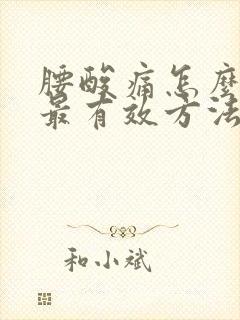 腰酸痛怎麼
最有效方法
和小斌